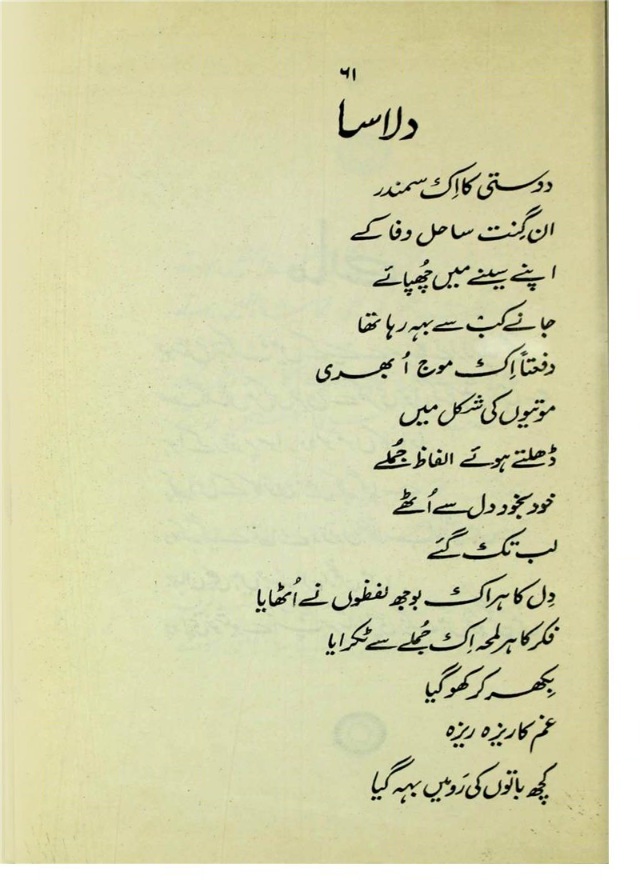 ۶۱
دلاسا
دوستی کا اِک سمندر
ان گِنت ساحل وفا کے
اپنے سینے میں چُھپائے
جانے کب سے بہہ رہا تھا
دفعتاً اِک موج اُبھری
موتیوں کی شکل میں
ڈھلتے ہوئے الفاظ جُملے
خود بخود دل سے اُٹھے
لب تک گئے
دِل کا ہر اک بوجھ لفظوں نے اُٹھایا
فکر کا ہر لمحہ اِک جُملے سے ٹکرایا
بِکھر کر کھو گیا
غم کا ریزہ ریزہ
کچھ باتوں کی رَو میں بہہ گیا